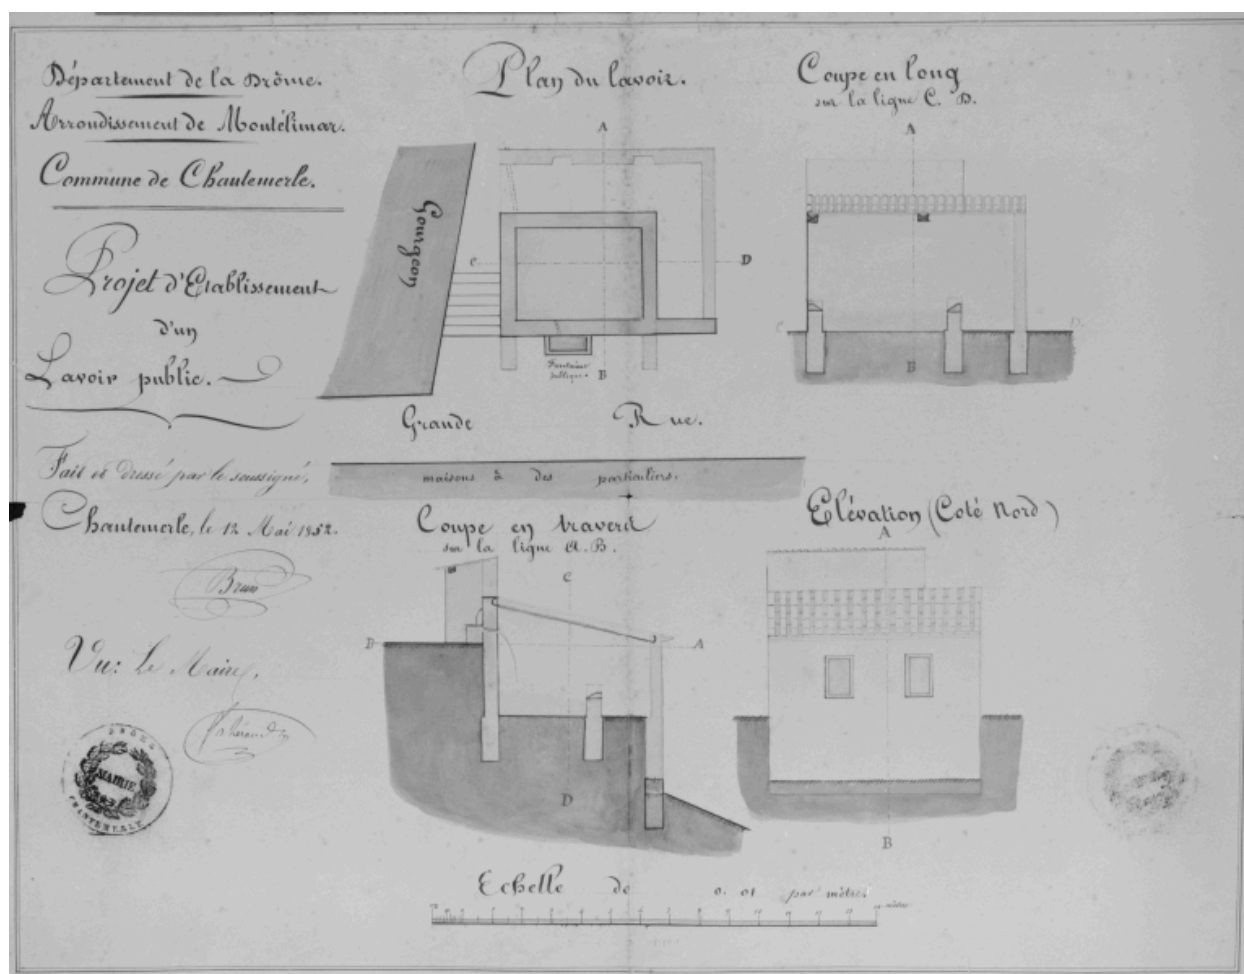 Département de la Drôme.
Arrondissement de Montélimar.
Commune de Chantemerle.
Projet d'Etablissement
d'un
Lavoir public.
Fait et dressé par le soussigné,
Chantemerle, le 12 Mai 1852.
Brun
Vu: Le Maire,
DRÔME
MAIRIE
CHANTEMERLE
Plan du lavoir.
A
Gourgeon
C
D
Fontaine
publique
B
Grande Rue.
maisons à des particuliers.
Coupe en long
sur la ligne C. D.
A
C
D.
B
Coupe en travers
sur la ligne A. B.
C
B
A
D
Elévation (Coté Nord)
A
B
Echelle de 0. 01 par mètre.
mètres